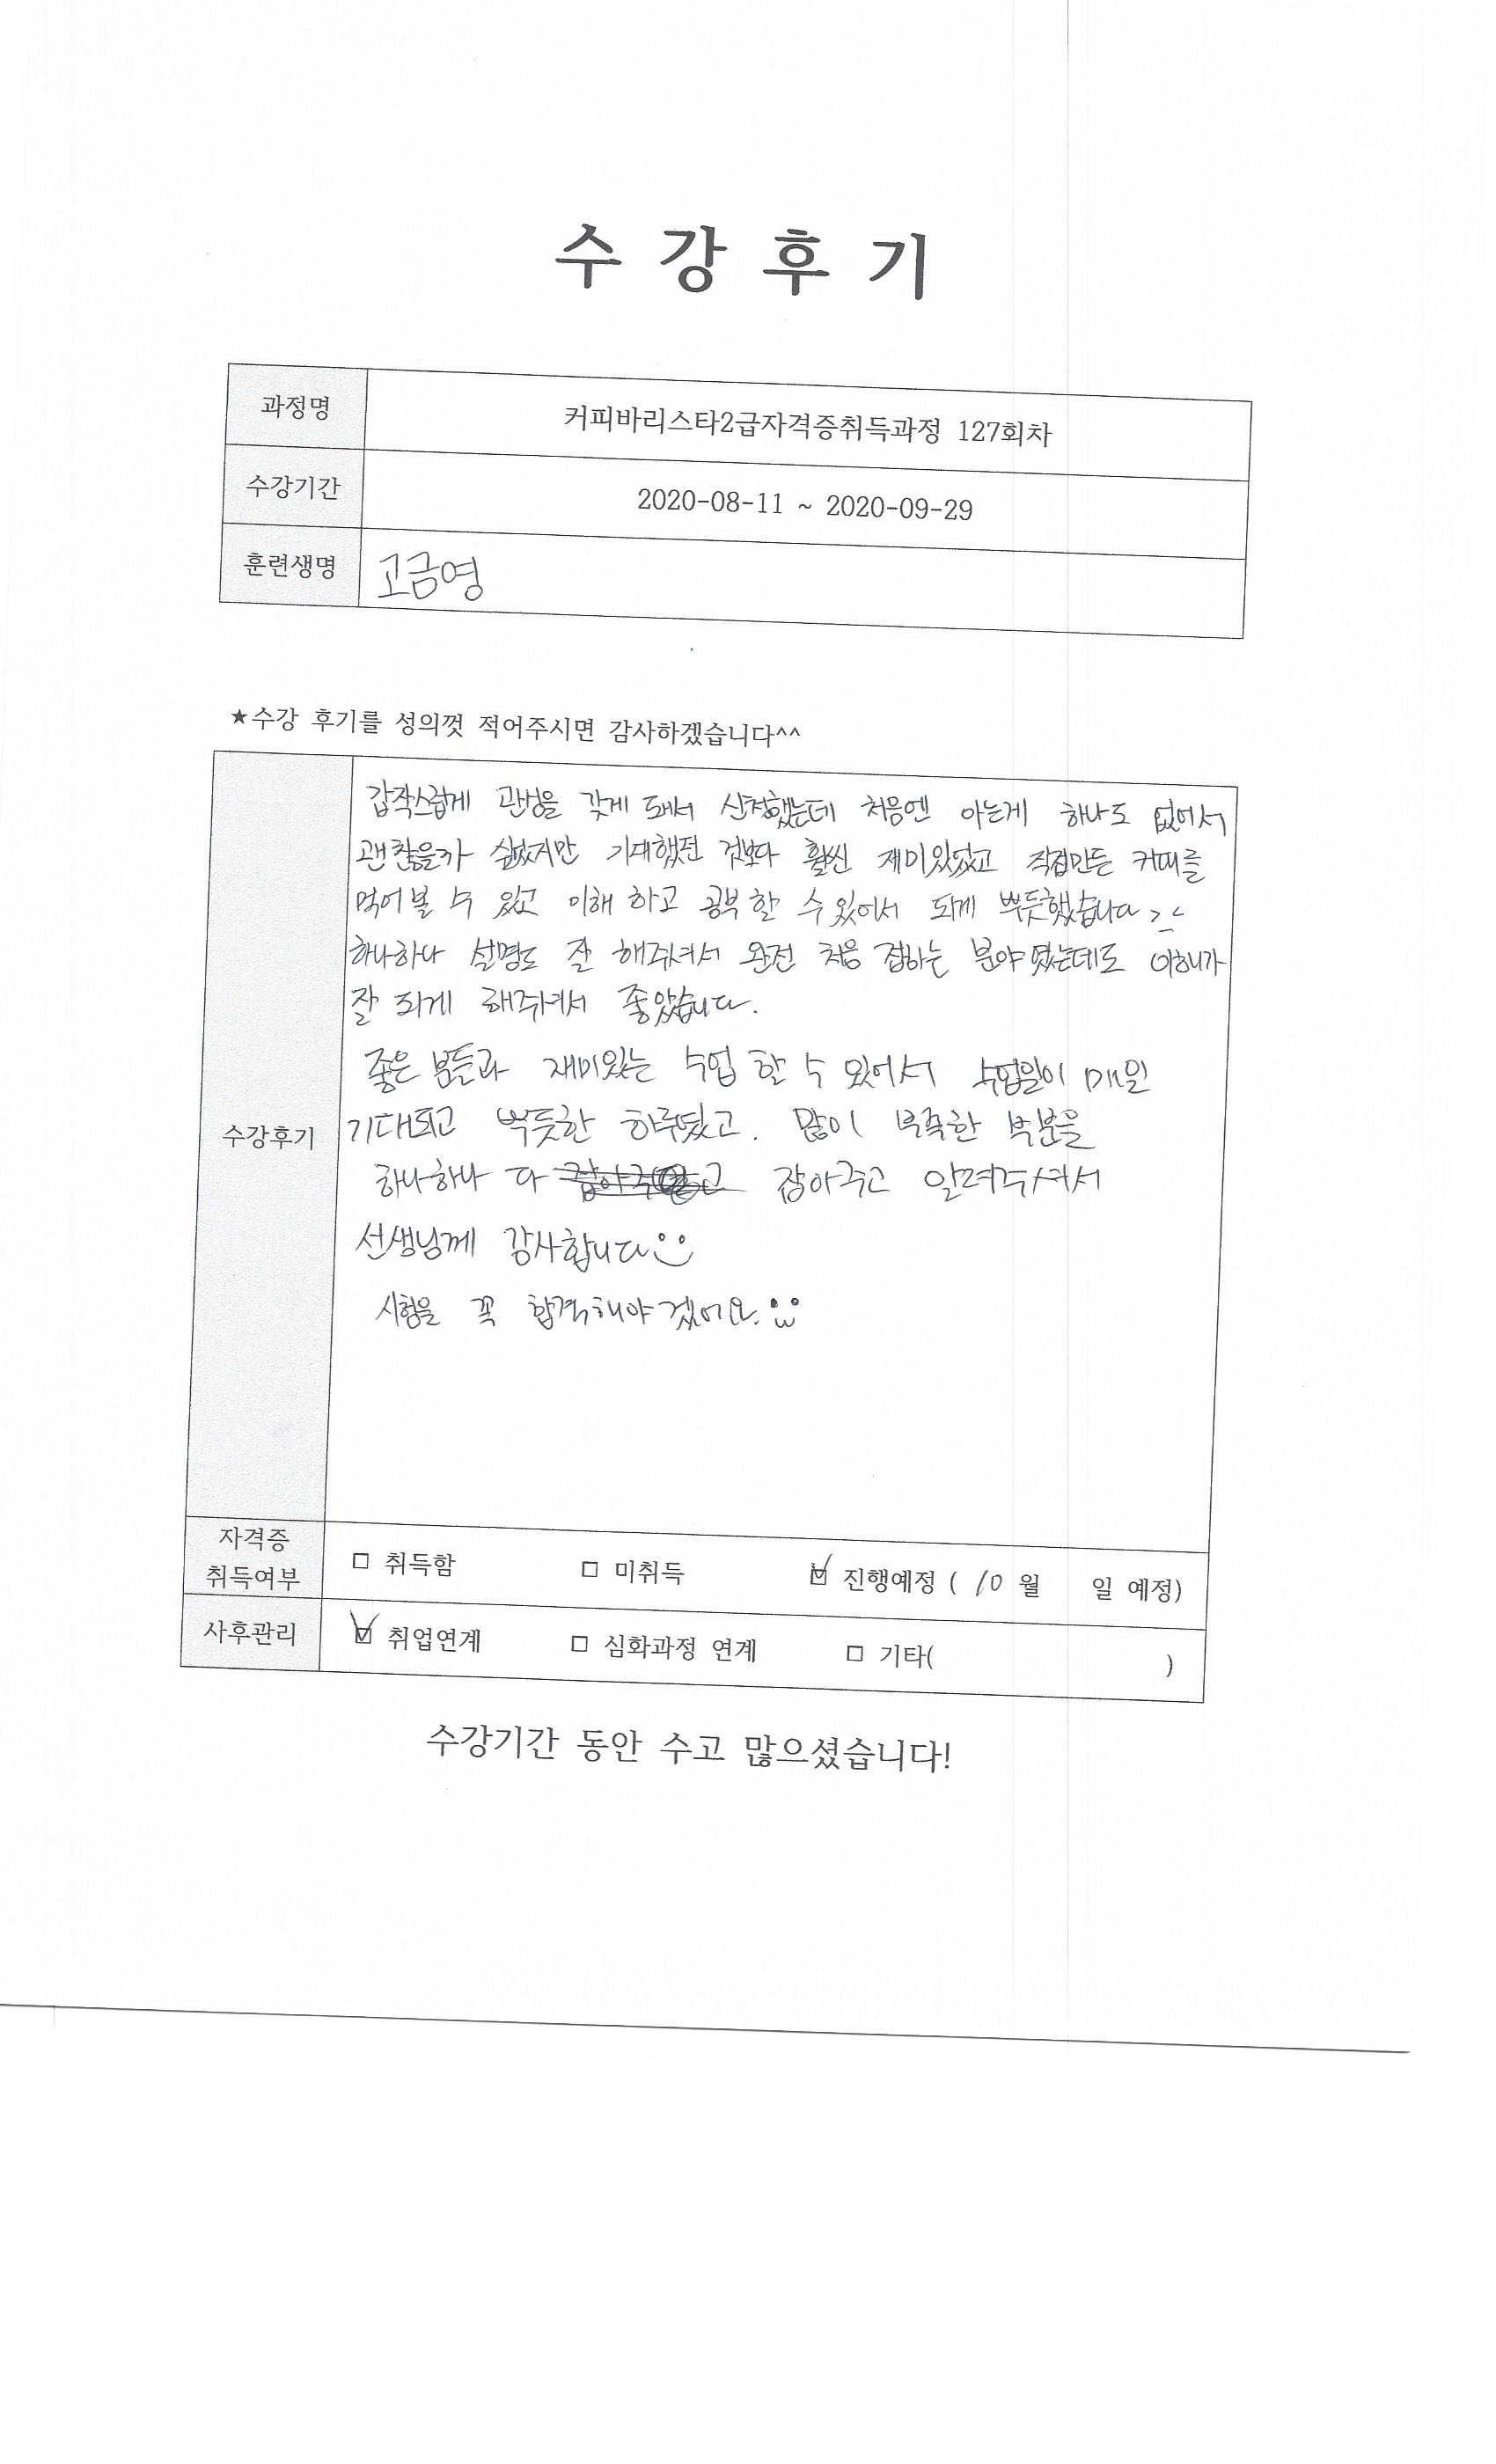 수 강 후 기
과정명 커피바리스타2급자격증취득과정 127회차
수강기간 2020-08-11 ~ 2020-09-29
훈련생명 고금영
★수강 후기를 성의껏 적어주시면 감사하겠습니다^^
갑작스럽게 관심을 갖게 돼서 신청했는데 처음엔 아는게 하나도 없어서
괜찮을까 싶었지만 기대했던 것보다 훨씬 재미있었고 직접만든 커피를
먹어볼 수 있고 이해 하고 공부 할 수 있어서 되게 뿌듯했습니다 >_<
하나하나 설명도 잘 해주셔서 완전 처음 접하는 분야 였는데도 이해가
잘 되게 해주셔서 좋았습니다.
좋은 분들과 재미있는 수업 할 수 있어서 수업일이 매일
기대되고 뿌듯한 하루됐고. 많이 부족한 부분을
하나하나 다 잡아주고 알려주셔서
수강후기
선생님께 감사합니다
시험을 꼭 합격해야겠어요.
자격증
취득여부 □ 취득함 □ 미취득 ☑ 진행예정 ( 10 월 일 예정)
사후관리 ☑ 취업연계 □ 심화과정 연계 □ 기타( )
수강기간 동안 수고 많으셨습니다!